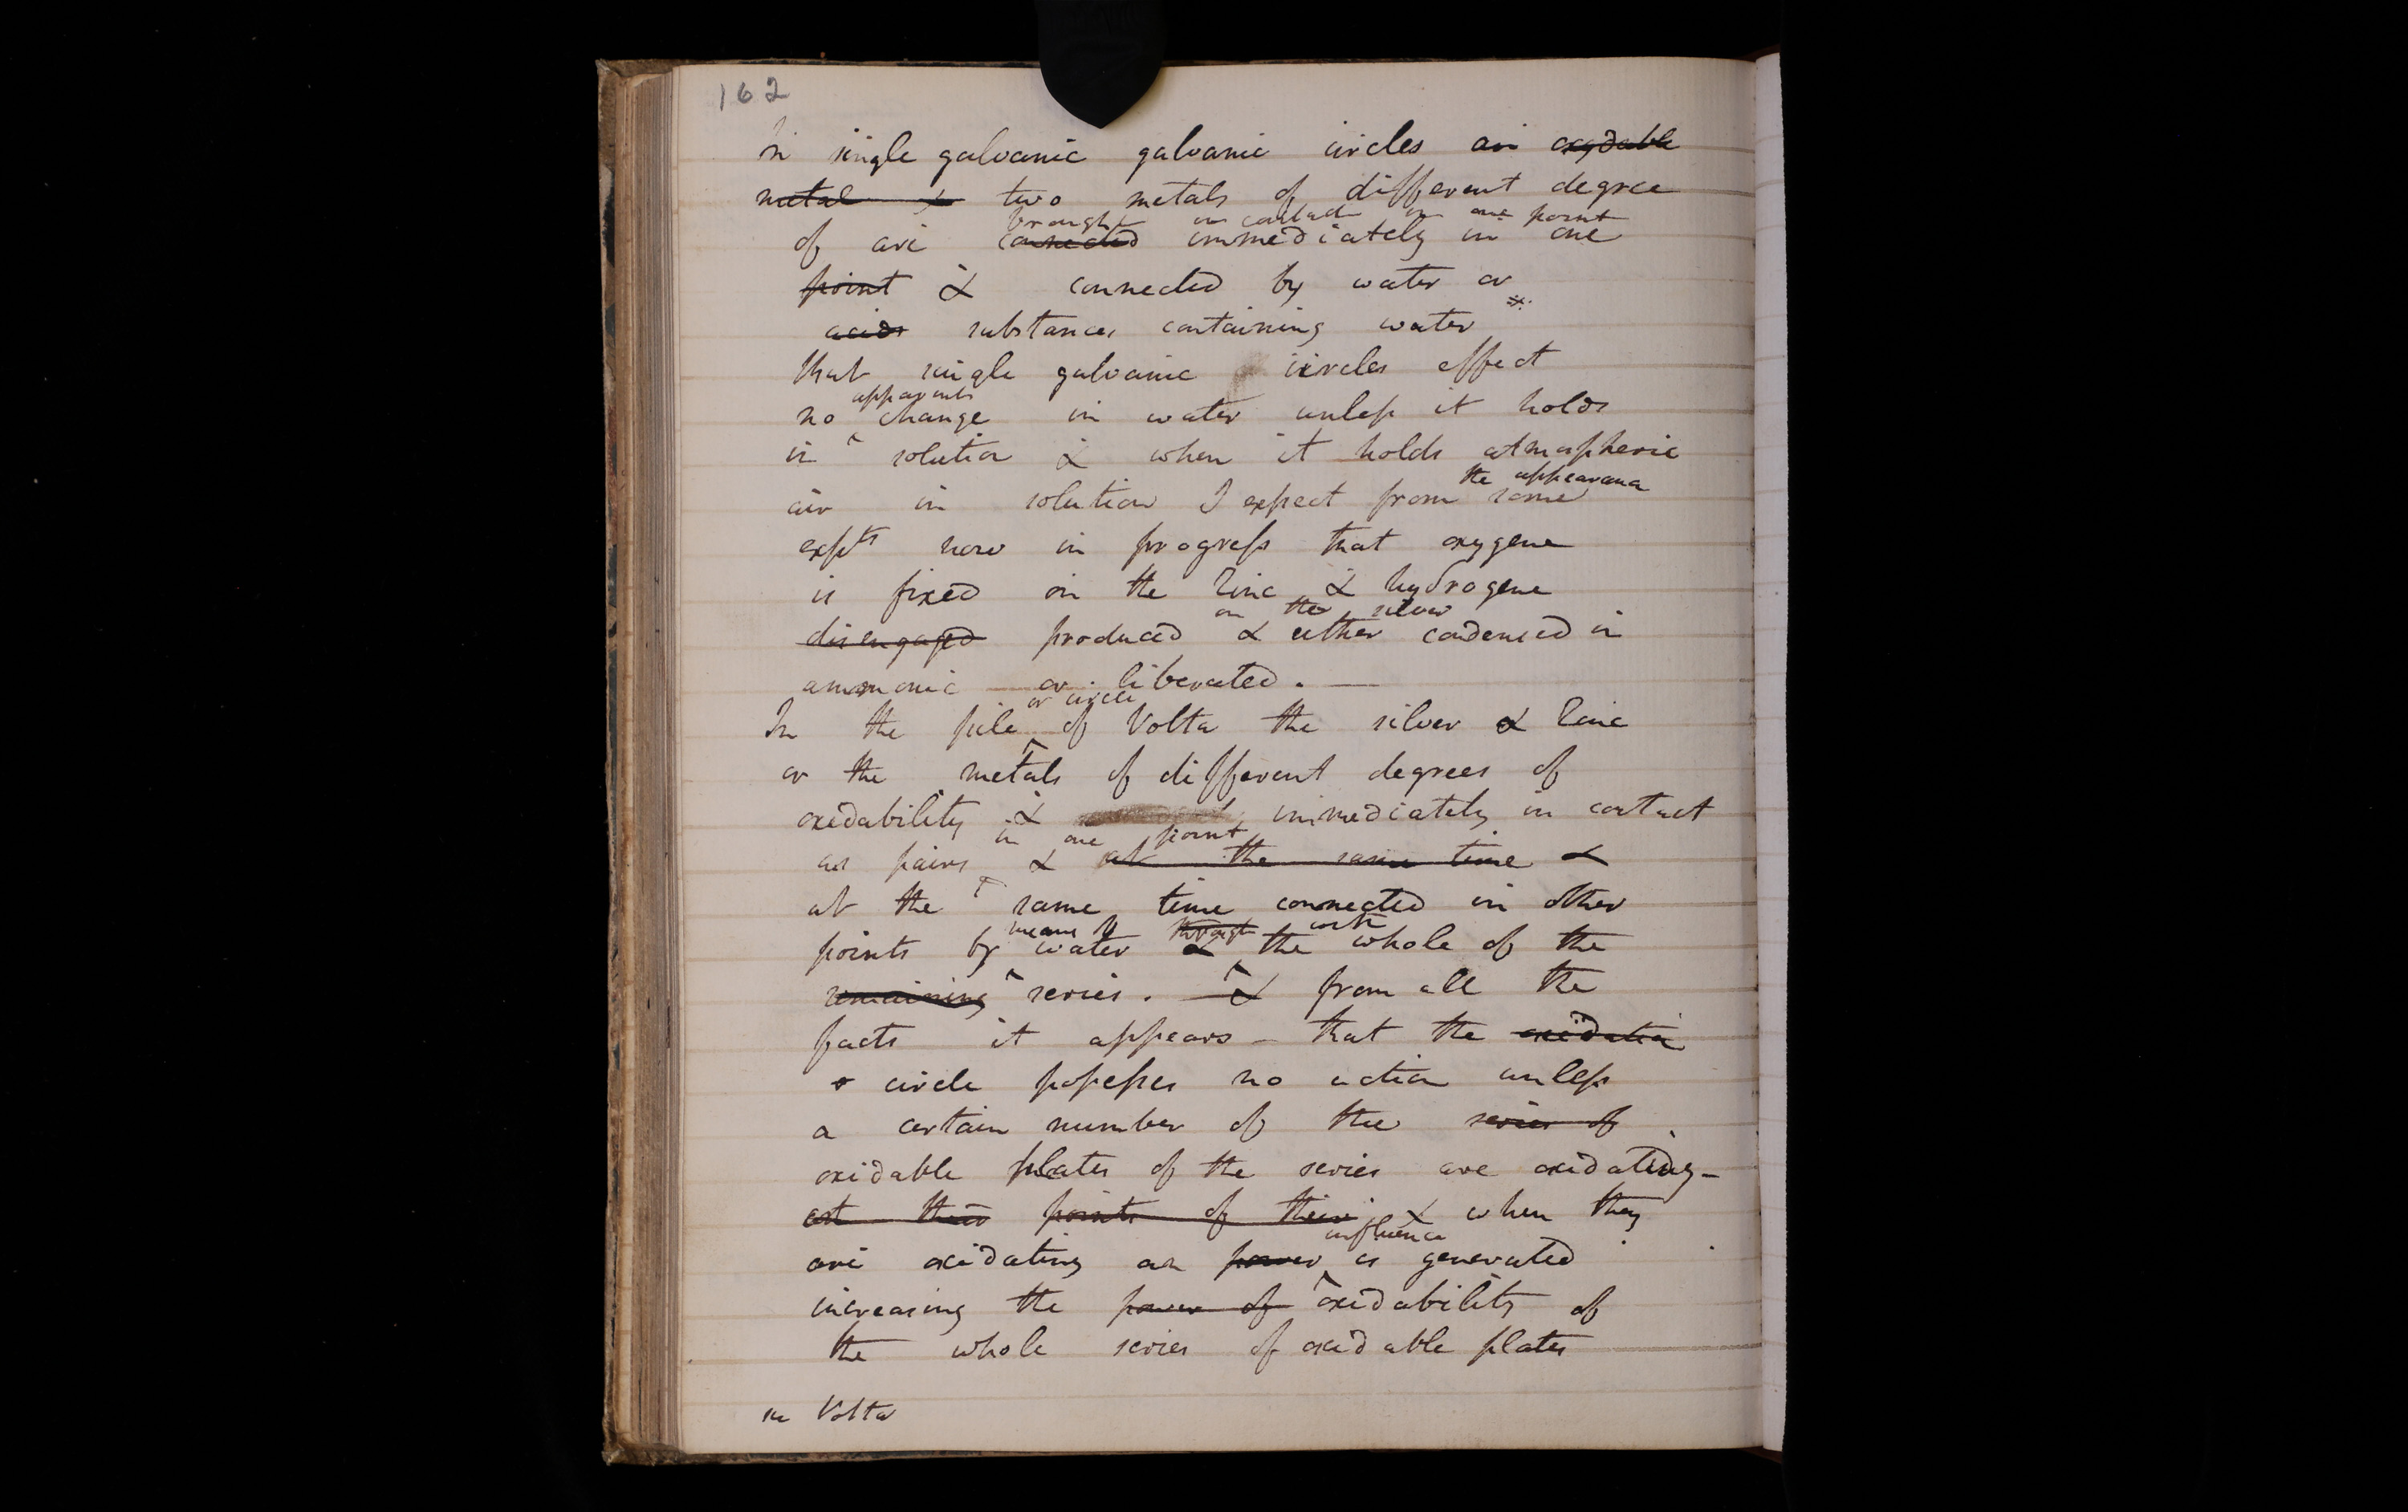 162
In single galvanic galvanic circles an oxydable
metal & two metals of different degree
brought in contact in one point
of are connected immediately in one
point & connected by water or
acids substances containing water
that single galvanic circles effect
apparent
no change in water unless it holds
in solution & when it holds atmospheric
the appearance
air in solution I expect from some
expts now in progress that oxygene
is fixed on the zinc & hydrogene
on the silver
disengaged produced & either condensed in
ammonic or liberated. —
or circle
In the pile of Volta the silver & zinc
or the metals of different degrees of
oxidability & immediately in contact
in one point
as pairs & at the same time &
at the same time connected in other
means of through with
points by water & the whole of the
remaining series. — & from all the
facts it appears – that the oxidation
circle possesses no action unless
a certain number of the series of
oxidable plates of the series are oxidating –
at their points of their & when they
influence
are oxidating an power is generated
increasing the power of oxidability of
the whole series of oxidable plates
in Volta